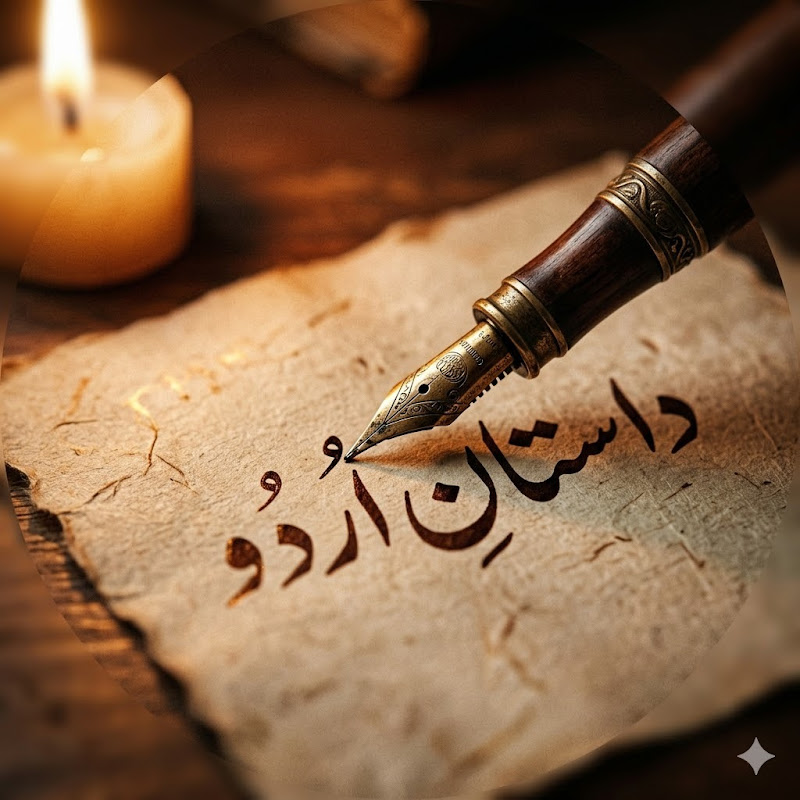 داستانِ اُردُو